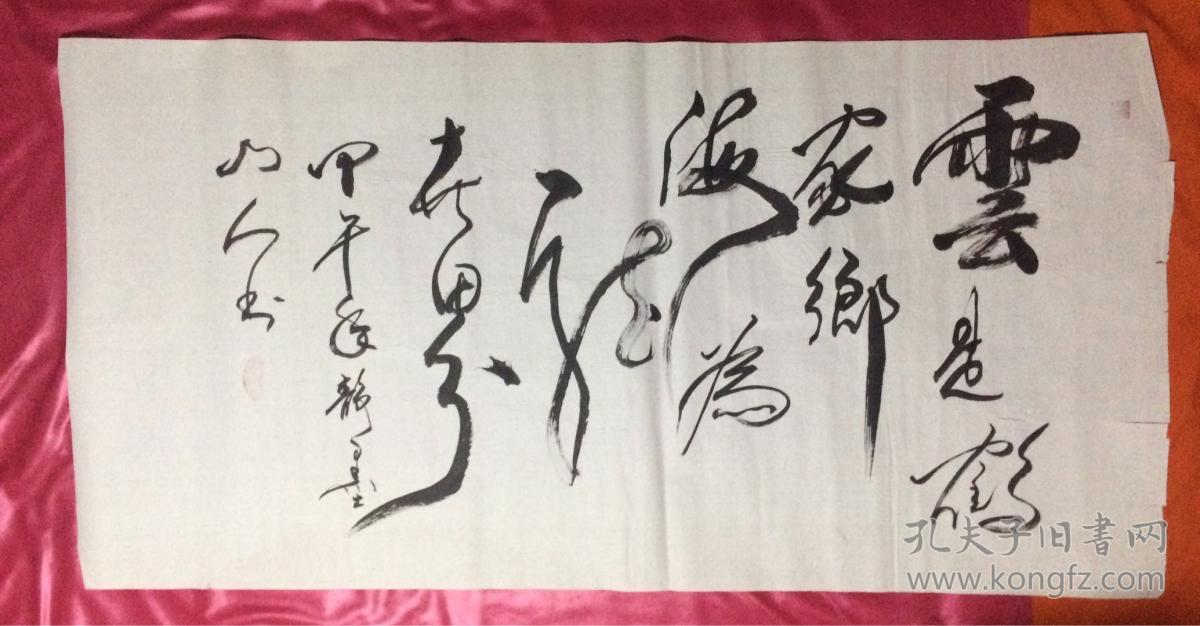 雲是鶴
家鄉
海為
龍
世界
甲午年靜墨
人书
孔夫子旧書网
www.kongfz.com